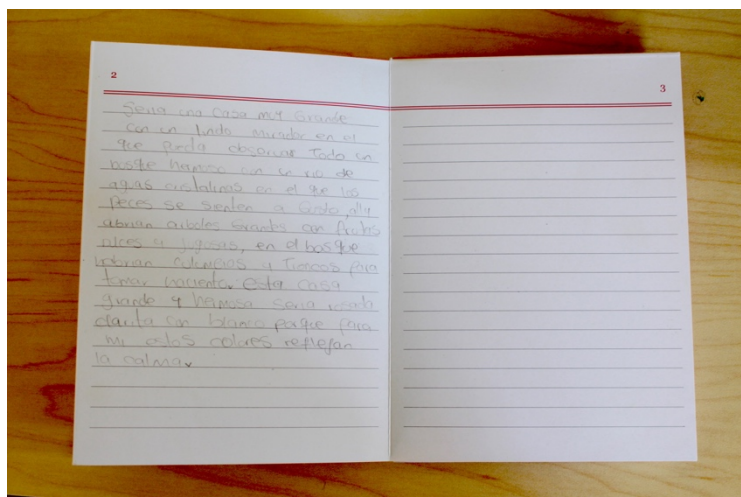 2
3
Seria una casa muy Grande
con un lindo mirador en el
que pueda observar Todo un
bosque hermoso con un rio de
aguas cristalinas en el que los
peces se sienten a Gusto, alli
abrian arboles Grandes con frutas
ulces y jugosas, en el bosque
habrian columpios y Troncos para
tomar haciento. esta casa
grande y hermosa seria rosada
clarita con blanco porque para
mi estos colores reflejan
la calma.